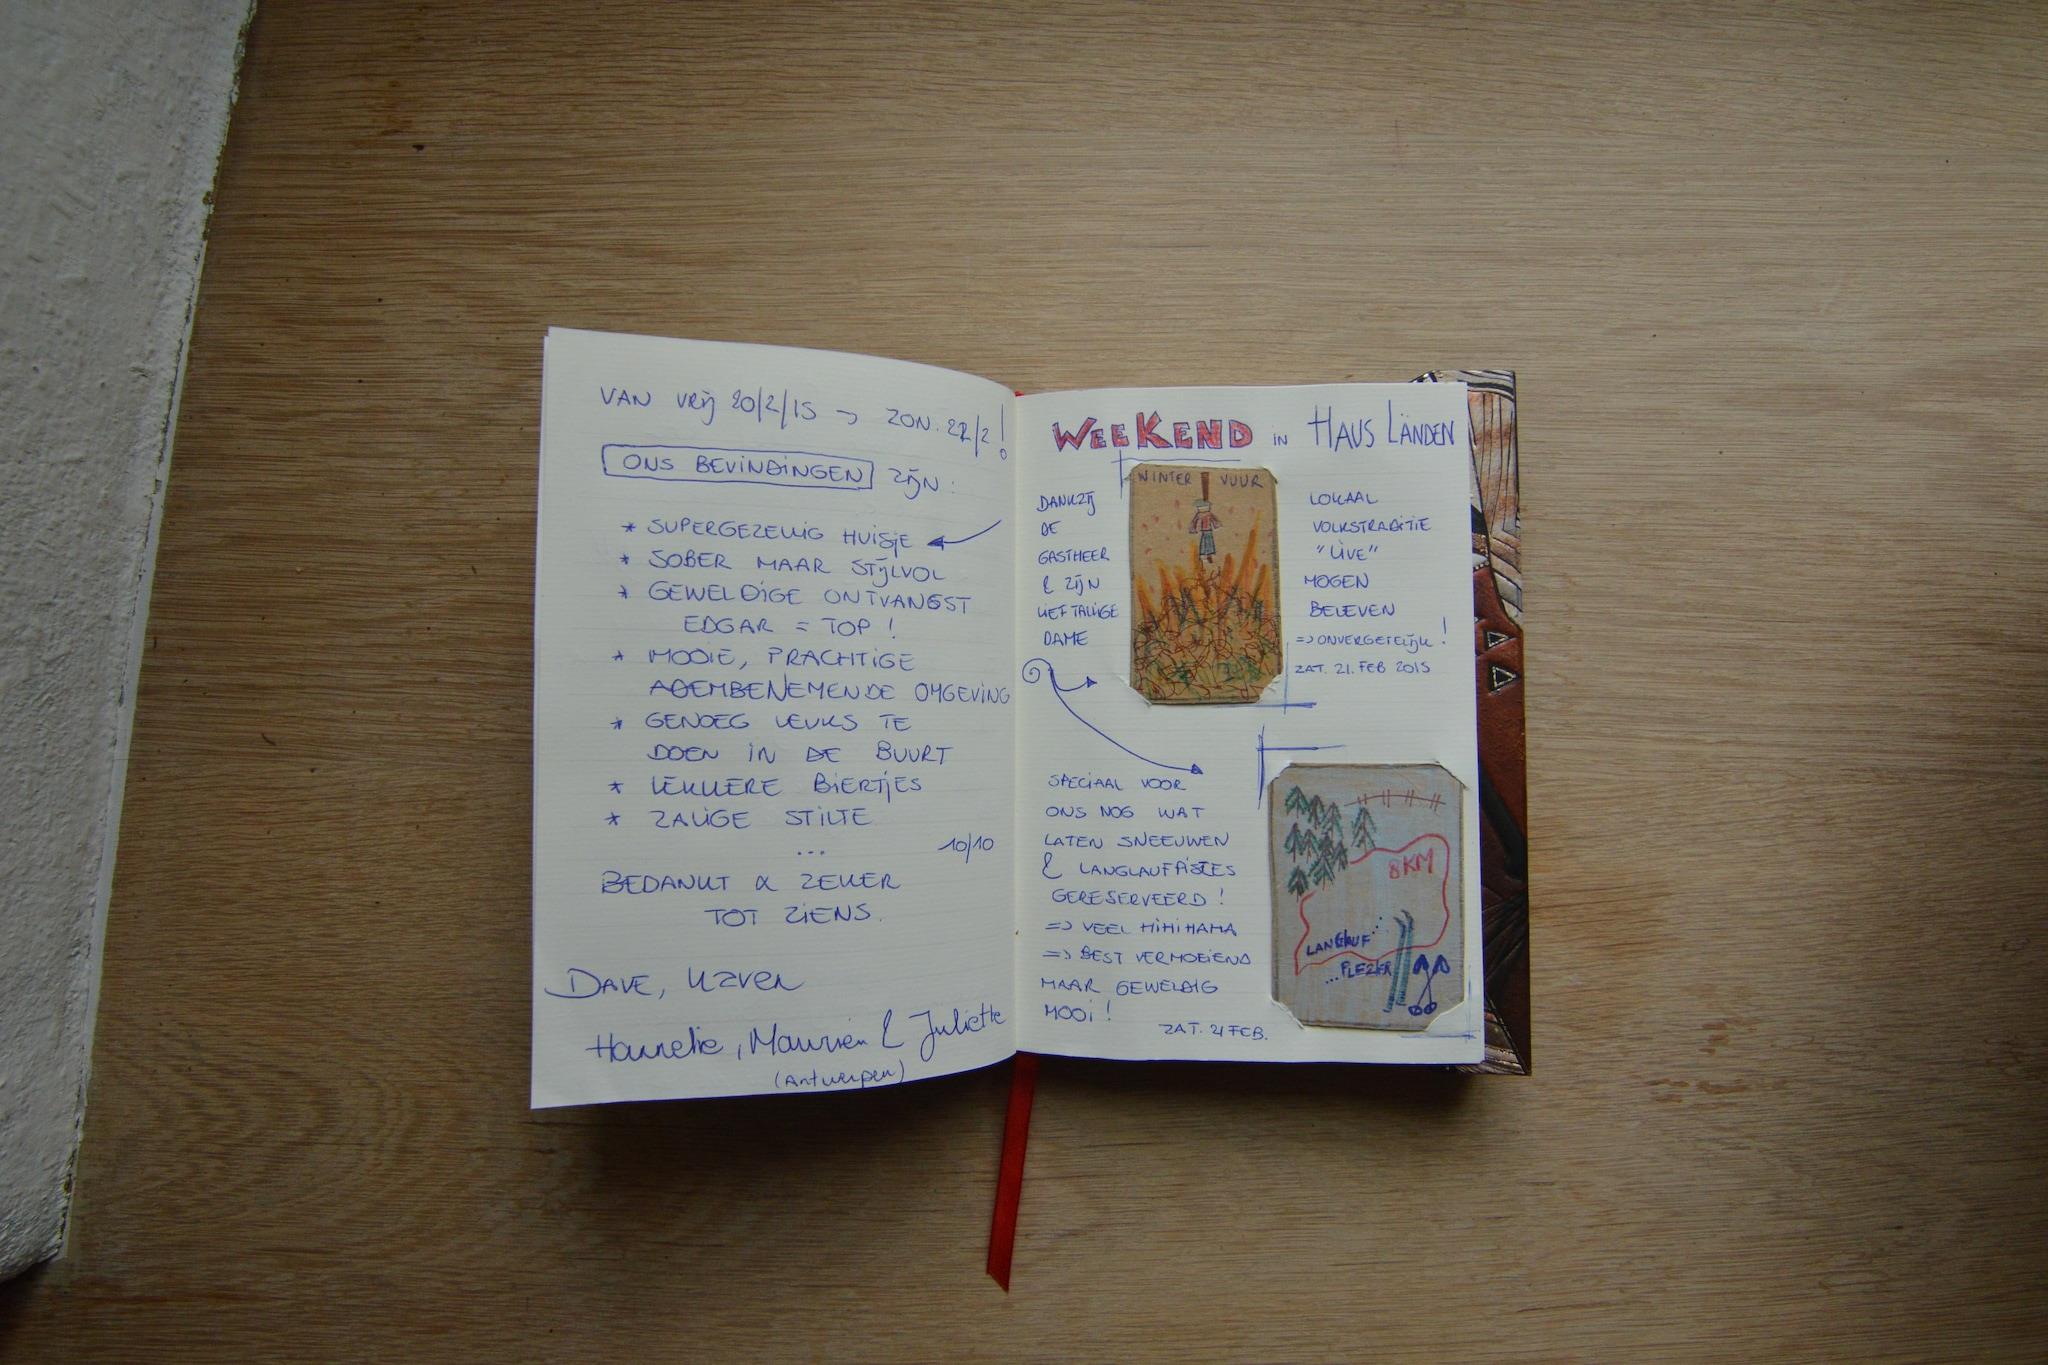 VAN VRIJ 20/2/15 → ZON. 22/2!
ONS BEVINDINGEN ZIJN:
* SUPERGEZELLIG HUISJE
* SOBER MAAR STIJLVOL
* GEWELDIGE ONTVANGST
EDGAR = TOP!
* MOOIE, PRACHTIGE
ADEMBENEMENDE OMGEVING
* GENOEG LEUKS TE
DOEN IN DE BUURT
* LEKKERE BIERTJES
* ZALIGE STILTE
... 10/10
BEDANKT & ZEKER
TOT ZIENS.
DAVE,
Hannelie, & Juliette
(Antwerpen)
WEEKEND IN HAUS LÄNDEN
DANKZIJ
DE
GASTHEER
& ZIJN
LIEFTALLIGE
DAME
WINTER VUUR
LOKAAL
VOLKSTRADITIE
"LIVE"
MOGEN
BELEVEN
=> ONVERGETELIJK!
ZAT. 21. FEB 2015
SPECIAAL VOOR
ONS NOG WAT
LATEN SNEEUWEN
& LANGLAUFPISTES
GERESERVEERD!
=> VEEL HIHIHAHA
=> BEST VERMOEIEND
MAAR GEWELDIG
MOOI!
ZAT. 21 FEB.
8KM
LANGLAUF...
...PLEZIER